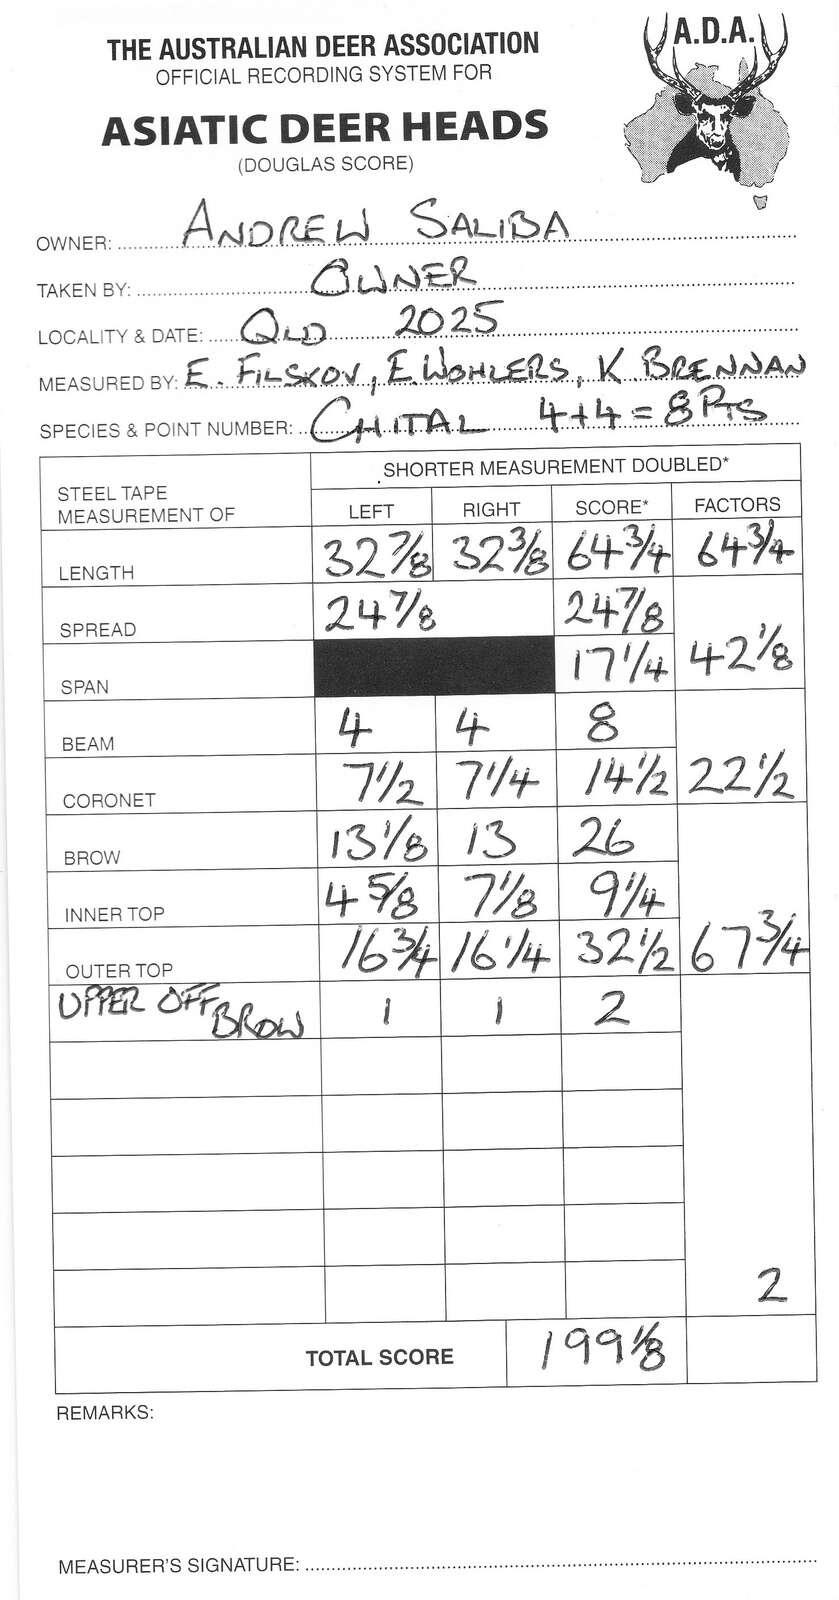 THE AUSTRALIAN DEER ASSOCIATION
OFFICIAL RECORDING SYSTEM FOR
ASIATIC DEER HEADS
(DOUGLAS SCORE)
A.D.A.
OWNER: ANDREW SALIBA
TAKEN BY: OWNER
LOCALITY & DATE: QLD 2025
MEASURED BY: E. FILSKOV, E. WOHLERS, K BRENNAN
SPECIES & POINT NUMBER: CHITAL 4+4 = 8 PTS
STEEL TAPE MEASUREMENT OF
SHORTER MEASUREMENT DOUBLED*
LEFT RIGHT SCORE* FACTORS
LENGTH 32 7/8 32 3/8 64 3/4 64 3/4
SPREAD 24 7/8 24 7/8
SPAN 17 1/4 42 1/8
BEAM 4 4 8
CORONET 7 1/2 7 1/4 14 1/2 22 1/2
BROW 13 1/8 13 26
INNER TOP 4 5/8 7 1/8 9 1/4
OUTER TOP 16 3/4 16 1/4 32 1/2 67 3/4
UPPER OFF BROW 1 1 2
2
TOTAL SCORE 199 1/8
REMARKS:
MEASURER'S SIGNATURE: